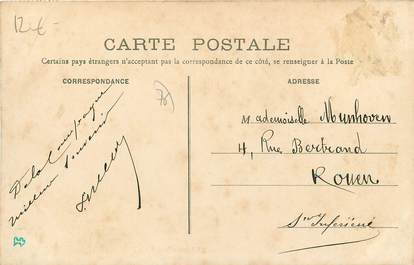 12€
CARTE POSTALE
Certains pays étrangers n'acceptant pas la correspondance de ce côté, se renseigner à la Poste
CORRESPONDANCE
ADRESSE
De la Campagne
meilleur souvenir
Mademoiselle Munhoven
4, Rue Bertrand
Rouen
Sne Inférieure